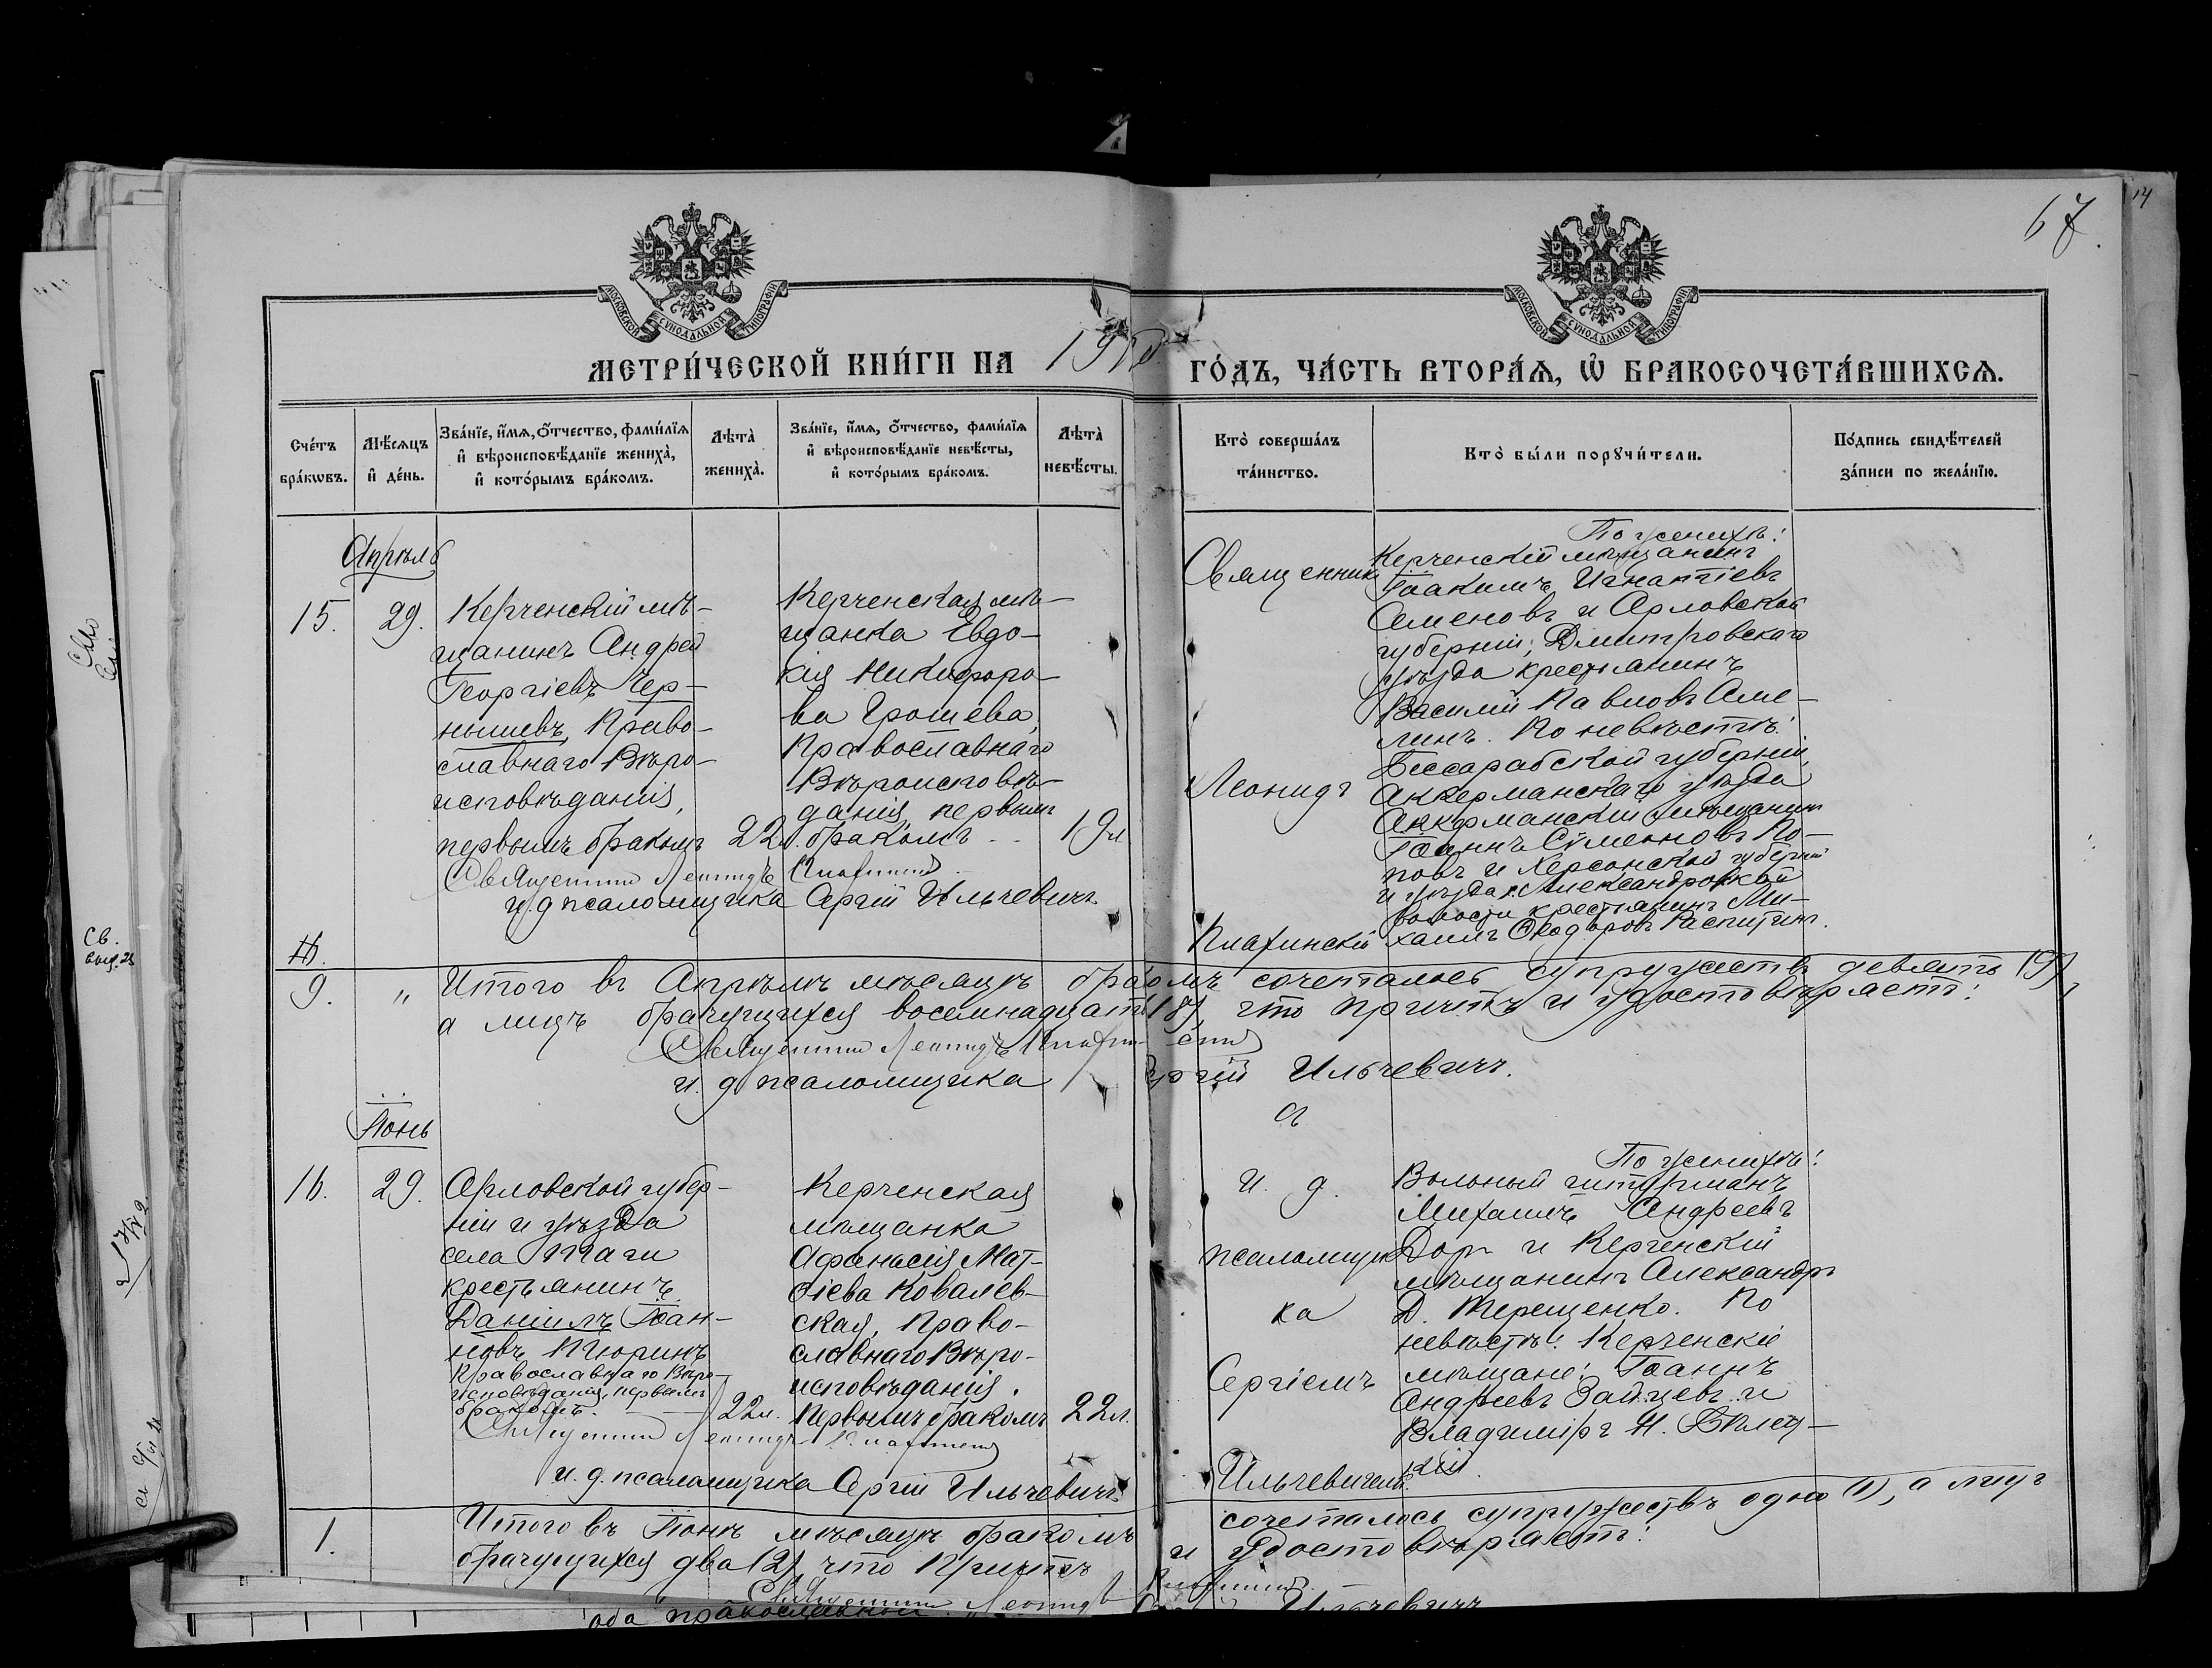 67.
14
МОСКОВСКОЙ СѴНОДАЛЬНОЙ ТИПОГРАФІИ
МОСКОВСКОЙ СѴНОДАЛЬНОЙ ТИПОГРАФІИ
МЕТРИ́ЧЕСКОЙ КНИ́ГИ НА ГО́ДЪ, ЧА́СТЬ ВТОРА́Я, Ѿ БРАКОСОЧЕТА́ВШИХСЯ.
Сче́тъ бра́кѡвъ.
Мѣ́сяцъ и҆ де́нь.
Зва́нїе, и҆́мя, ѻ҆́тчество, фами́лїя и҆ вѣроисповѣ́данїе жениха̀, и҆ кото́рымъ бра́комъ.
Лѣта̀ жениха̀.
Зва́нїе, и҆́мя, ѻ҆́тчество, фами́лїя и҆ вѣроисповѣ́данїе невѣ́сты, и҆ кото́рымъ бра́комъ.
Лѣта̀ невѣ́сты.
Кто̀ соверша́лъ та́инство.
Кто̀ бы́ли порꙋчи́тели.
По́дпись свидѣ́телей за́писи по жела́нїю.
Апрѣль
15.
29.
Керченскій мѣ-
щанинъ Андрей
Георгіевъ Чер-
нышевъ, Право-
славнаго Вѣро-
исповѣданія,
первымъ бракомъ
22 л.
Керченская мѣ-
щанка Евдо-
кія Никифоро-
ва Грошева,
Православнаго
Вѣроисповѣ-
данія, первымъ
бракомъ
19 л
Священникъ
Леонидъ
По женихѣ:
Керченскій мѣщанинъ
Іоакимъ Игнатіевъ
Семеновъ и Орловской
губерніи, Дмитровскаго
уѣзда крестьянинъ
Василій Павловъ Аме-
линъ. По невѣстѣ:
Бессарабской губерніи,
Аккерманскаго уѣзда
Аккерманскій мѣщанинъ
Іоаннъ Сѵмеоновъ По-
повъ и Херсонской губерніи
и уѣзда Александровской
волости крестьянинъ Ми-
хаилъ Ѳеодоровъ
Священникъ Леонидъ
и. д. псаломщика Сергій Ильчевичъ
9.
"
Итого въ Апрѣлѣ мѣсяцѣ бракомъ сочеталось супружествъ девять (9),
а лицъ брачущихся восемнадцать (18), что причтъ и удостовѣряетъ:
Священникъ Леонидъ
и. д. псаломщика Сергій Ильчевичъ.
Іюнь
16.
29.
Орловской губер-
ніи и уѣзда
села
крестьянинъ
Даніилъ Іоан-
новъ Пюринъ
Православнаго Вѣро-
исповѣданія, первымъ
бракомъ.
22 л.
Керченская
мѣщанка
Афанасія Мат-
ѳіева Ковалев-
ская, Право-
славнаго Вѣро-
исповѣданія.
Первымъ бракомъ
22 л.
И. д.
псаломщи
ка
Сергіемъ
Ильчевичемъ.
По женихѣ:
Вольный штурманъ
Михаилъ Андреевъ
и Керченскій
мѣщанинъ Александръ
Д. Терещенко. По
невѣстѣ: Керченскіе
мѣщане: Іоаннъ
Андреевъ Зайцевъ и
Владиміръ
Священникъ Леонидъ
и. д. псаломщика Сергій Ильчевичъ
1.
Итого въ Іюнѣ мѣсяцѣ бракомъ сочеталось супружествъ одно (1), а лицъ
брачущихся два (2), что Причтъ и удостовѣряетъ:
Священникъ Леонидъ
Ильчевичъ
Св.